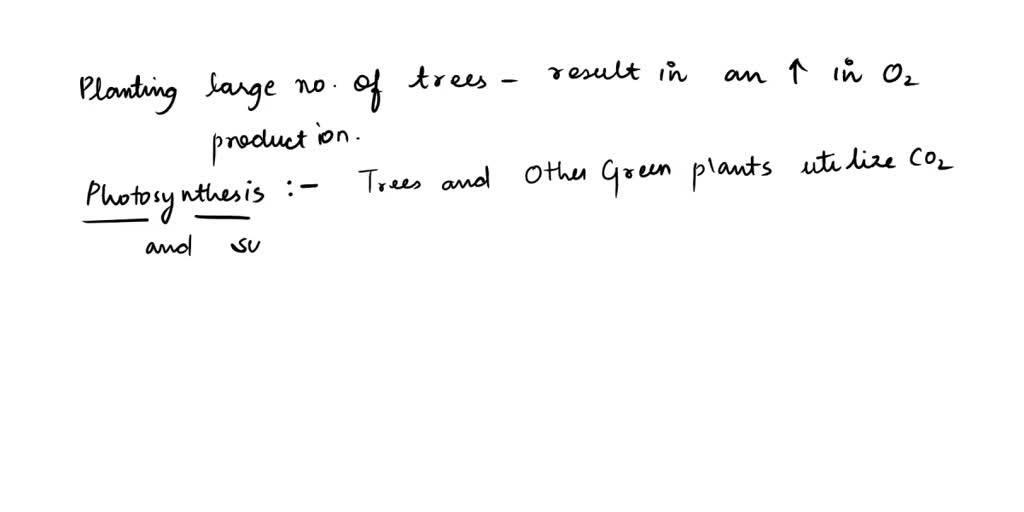 Planting large no. of trees - result in an ↑ in O₂
production.
Photosynthesis :- Trees and Other Green plants utilize CO₂
and su